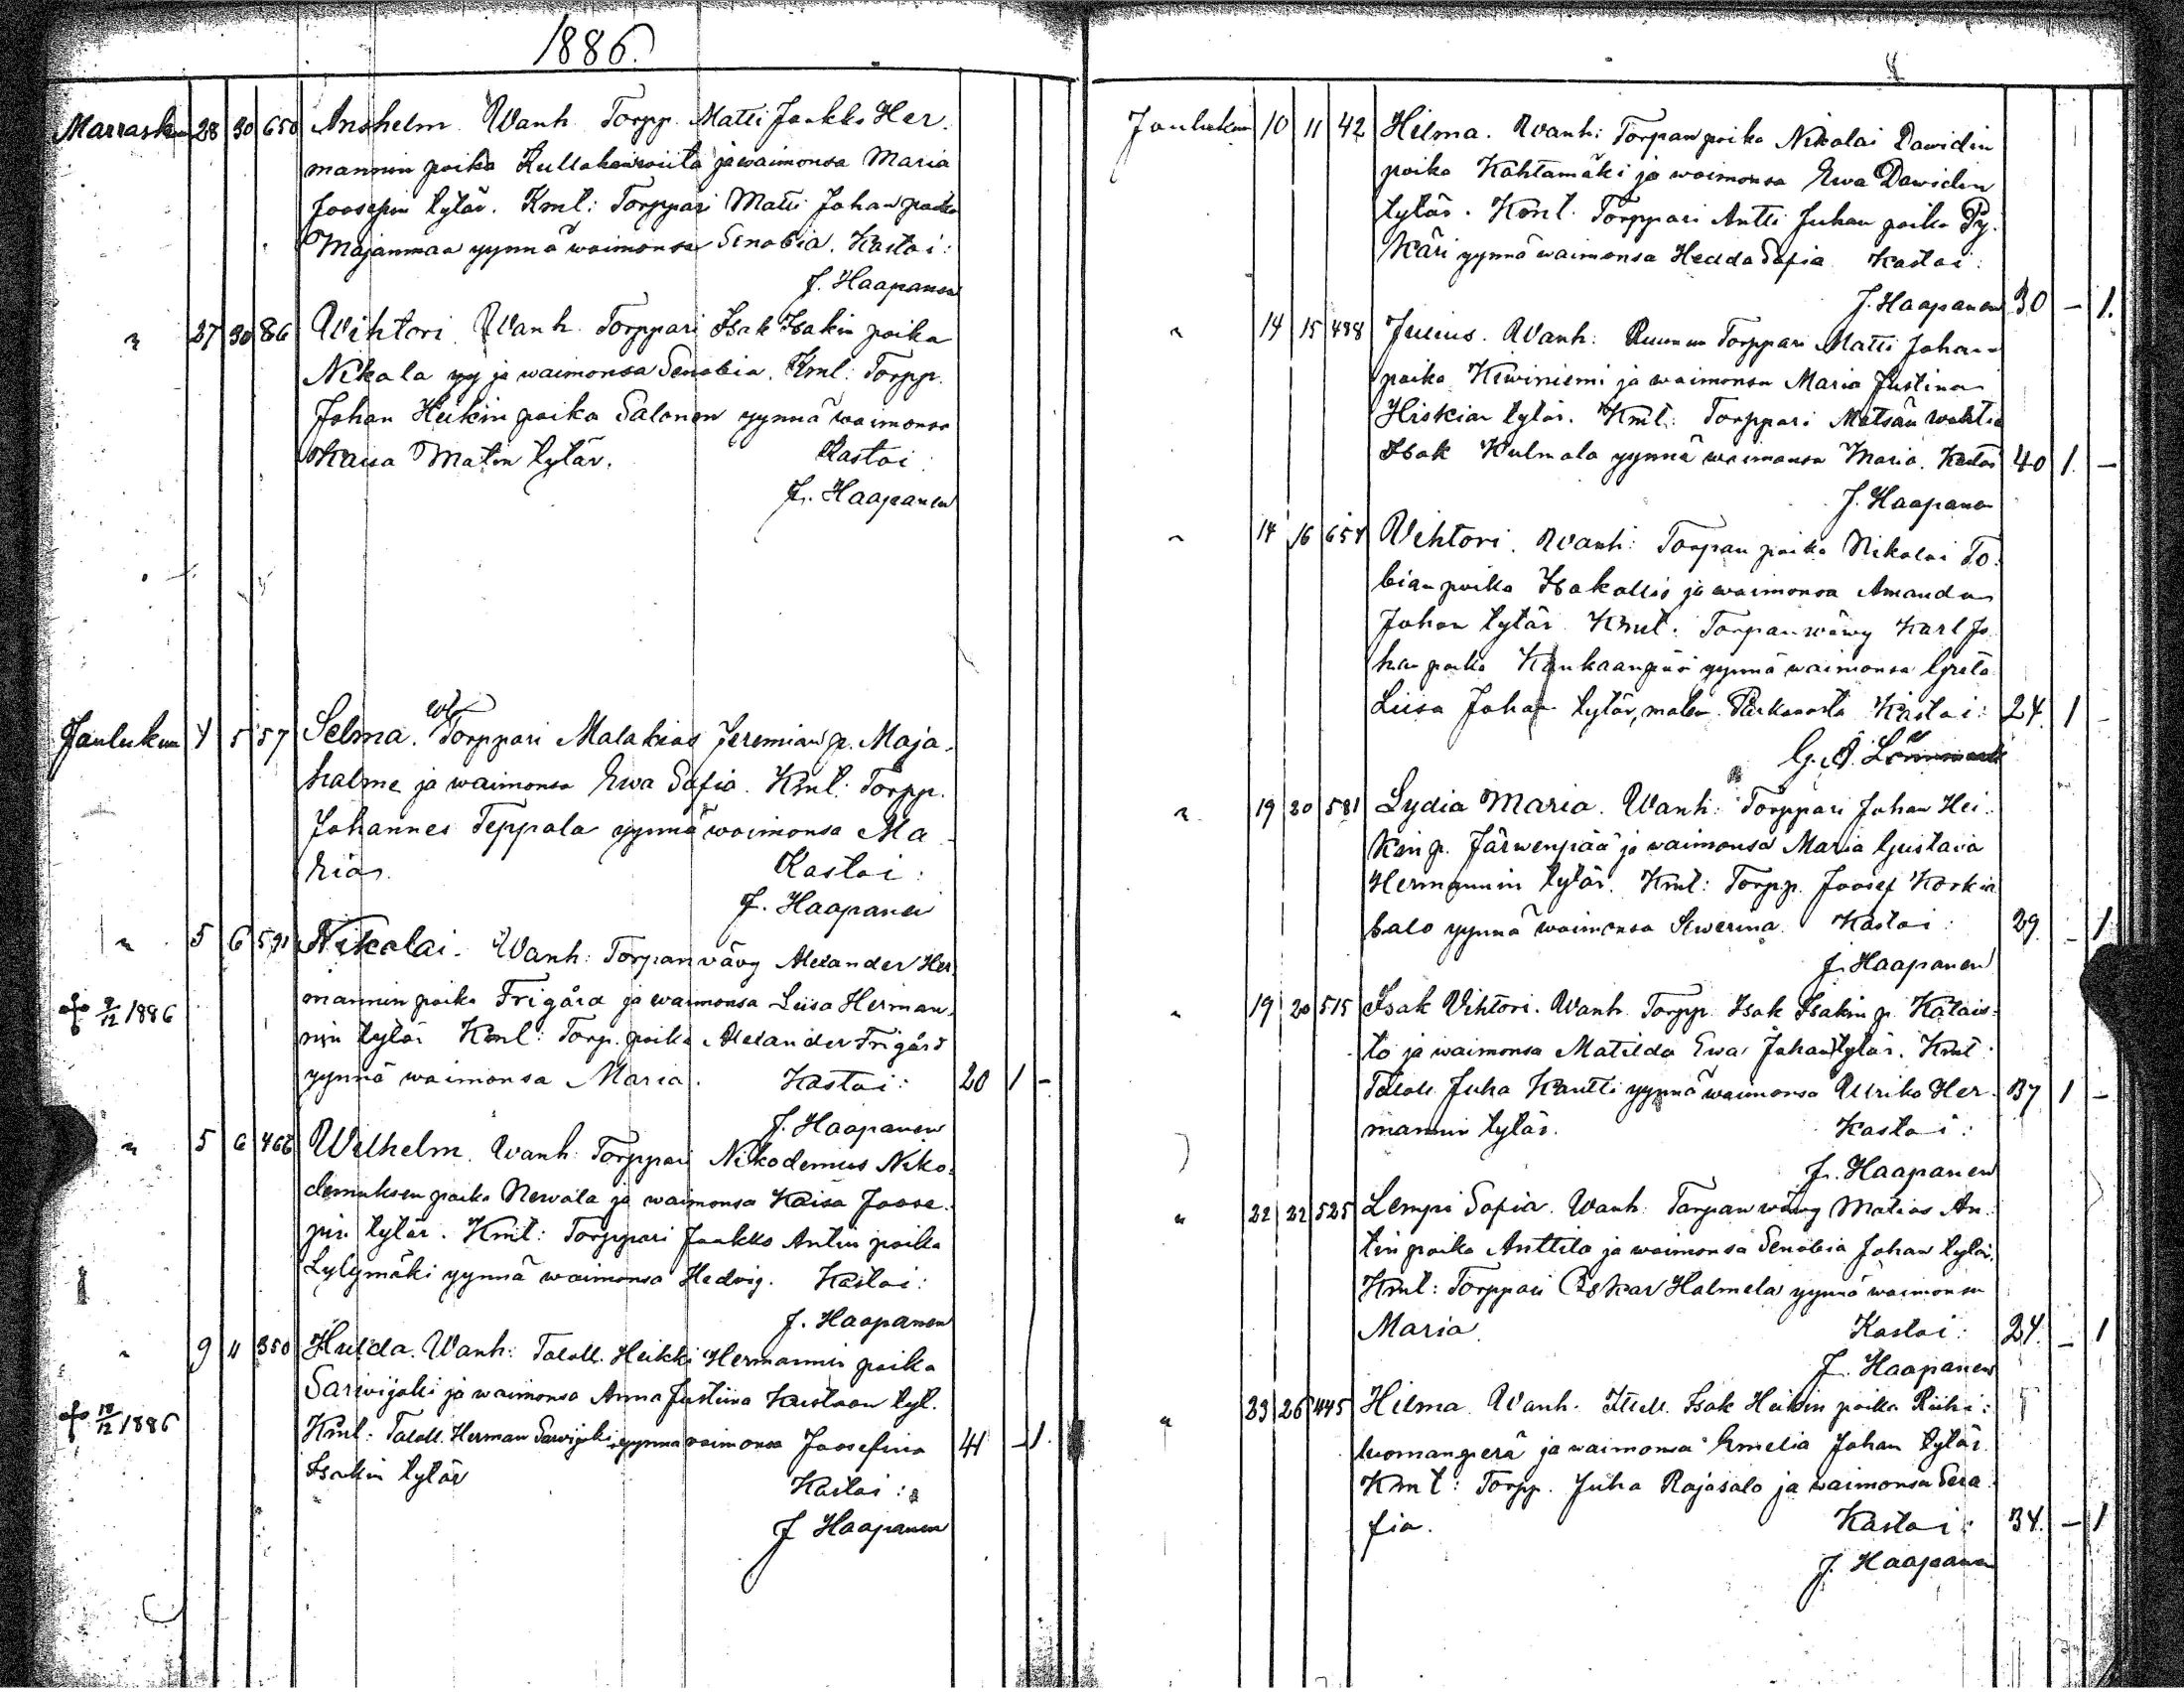 1886.
Marrask. 28 30 650 Anshelm. Wanh. Torpp. Matti Jaakko Her-
mannin poika Kullakanwiita ja waimonsa Maria
Joosepin tytär. Kml: Torppari Matti Johan poika
Majanmaa yynnä waimonsa Senobia. Kastoi:
J. Haapanen
" 27 30 86 Wihtori. Wanh. Torppari Isak Isakin poika
Nikola yy ja waimonsa Senobia. Kml: Torpp.
Johan Heikin poika Salonen yynnä waimonsa
Kaisa Matin tytär. Kastoi
J. Haapanen
Joulukuu 4 5 57 Selma. Wh Torppari Malakias Jeremian p. Maja-
halme ja waimonsa Ewa Sofia. Kml: Torpp.
Johannes Teppala yynnä waimonsa Ma-
rian. Kastoi:
J. Haapanen
" 5 6 591 Nikolai. Wanh: Torpanvävy Alexander Her-
mannin poika Frigård ja waimonsa Liisa Herman-
nin tytär Kml: Torp. poika Alexander Frigård
yynnä waimonsa Maria. Kastoi: 20 1 -
J. Haapanen
9/12 1886
" 5 6 466 Wilhelm. Wanh: Torppari Nikodemus Niko-
demuksen poika Newala ja waimonsa Kaisa Joose-
pin tytär. Kml: Torppari Jaakko Antin poika
Lylymäki yynnä waimonsa Hedvig. Kastoi:
J. Haapanen
" 9 11 350 Hulda. Wanh: Taloll. Heikki Hermannin poika
Sarwijoki ja waimonsa Anna Justiina Kustaan tyt.
Kml: Taloll. Herman Sarwijoki yynnä waimonsa Joosefina 41 - 1
Isakin tytär Kastoi:
J Haapanen
18/12 1886
Joulukuu 10 11 42 Hilma. Wanh: Torpan poika Nikolai Dawidin
poika Kahtamäki ja waimonsa Ewa Dawidin
tytär. Kml. Torppari Antti Juhan poika Py-
käri yynnä waimonsa Hedda Sofia Kastoi:
J. Haapanen 30 - 1.
" 14 15 488 Julius. Wanh: Ruunun Torppari Matti Johan
poika Kiwiniemi ja waimonsa Maria Justina
Hiskian tytär. Kml: Torppari Metsän wahti
Isak Kulmala yynnä waimonsa Maria. Kastoi 40 1. -
J. Haapanen
" 14 16 654 Vihtori. Wanh: Torpan poika Nikolai To-
bian poika Isokallio ja waimonsa Amanda
Johan tytär Kml: Torpanwäwy Karl Jo-
han poika Kankaanpää yynnä waimonsa Greta
Liisa Johan tytär, molem. Parkanosta Kastoi: 24. 1 -
G. A. Lönnmark
" 19 20 581 Lydia Maria. Wanh: Torppari Johan Hei-
kin p. Järwenpää ja waimonsa Maria Gustava
Hermannin tytär. Kml: Torpp. Joosef Korkia
salo yynnä waimonsa Sewerina. Kastoi: 29. - 1
J. Haapanen
" 19 20 515 Isak Vihtori. Wanh. Torpp. Isak Isakin p. Katais-
to ja waimonsa Matilda Ewa Johan tytär. Kml:
Taloll. Juha Kantti yynnä waimonsa Ulrika Her- 37 1 -
mannin tytär. Kastoi:
J. Haapanen
" 22 22 525 Lempi Sofia. Wanh: Torpan wäwy Matias An-
tin poika Anttila ja waimonsa Senobia Johan tytär.
Kml: Torppari Oskar Halmela yynnä waimonsa
Maria. Kastoi: 24. - 1
J. Haapanen
" 23 26 445 Hilma. Wanh. Isak Heikin poika Riihi-
luomanperä ja waimonsa Emelia Johan tytär.
Kml: Torpp. Juha Rajasalo ja waimonsa Sera-
fia. Kastoi: 34. - 1
J. Haapanen